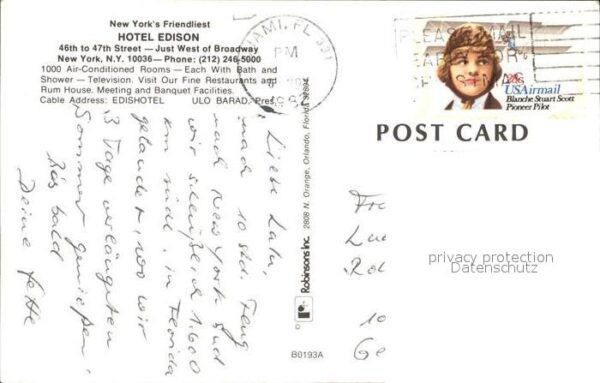 New York's Friendliest
HOTEL EDISON
46th to 47th Street — Just West of Broadway
New York, N.Y. 10036 — Phone: (212) 246-5000
1000 Air-Conditioned Rooms — Each With Bath and
Shower — Television. Visit Our Fine Restaurants and
Rum House. Meeting and Banquet Facilities.
Cable Address: EDISHOTEL ULO BARAD, Pres.
MIAMI, FL 331
PM
PLEASE MAIL
EARLY FOR
USAirmail
Blanche Stuart Scott
Pioneer Pilot
POST CARD
Liebe
nach 10 std. Flug
nach New York sind
wir schließlich 1.600
km südl. in Florida
gelandet, wo wir
3 Tage verlängerten
Sommer genießen.
Bis bald
Deine
© Robinsons Inc. 2808 N. Orange, Orlando, Florida 32804
B0193A
privacy protection
Datenschutz